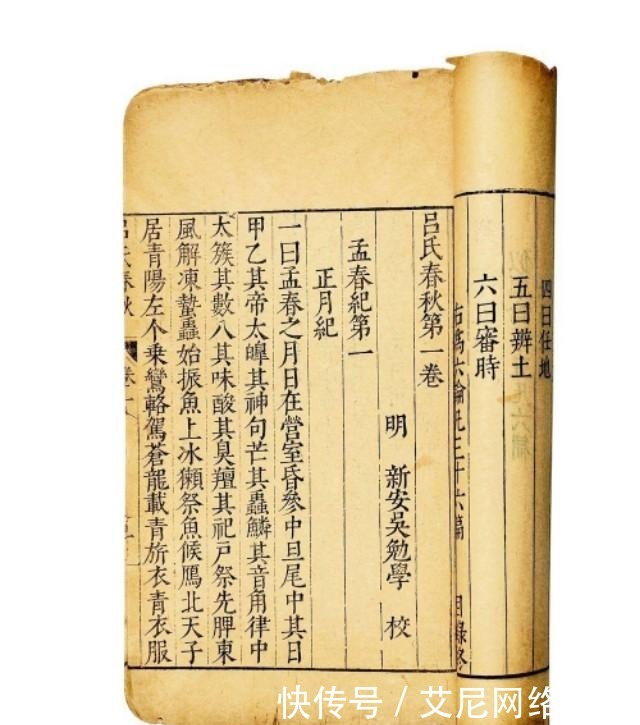 四曰任地
五曰辨土
六曰審時
右爲六論凡三十六篇
目錄終
呂氏春秋第一卷
明 新安吳勉學 校
孟春紀第一
正月紀
一曰孟春之月日在營室昏參中旦尾中其日
甲乙其帝太皥其神句芒其蟲鱗其音角律中
太簇其數八其味酸其臭羶其祀戶祭先脾東
風解凍蟄蟲始振魚上冰獺祭魚候鴈北天子
居青陽左个乘鸞輅駕蒼龍載青旂衣青衣服
呂氏春秋
卷一
快传号 / 艾尼网络